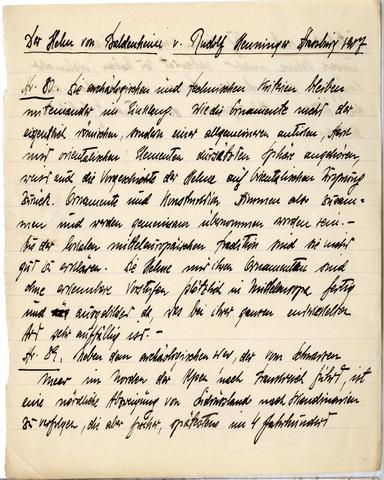 Der Helm von Baldenheim v. Rudolf Henninger Strassburg 1907
Nr. 80. Die archäologischen und technischen Kriterien bleiben
miteinander im Einklang. Wie die Ornamente nicht der
eigentlich römischen, sondern einer allgemeineren antiken, stark
mit orientalischen Elementen durchsetzten Sphäre angehören,
weist auch die Vorgeschichte der Helme auf orientalischen Ursprung
zurück. Ornamente und Konstruktion stimmen also zusam-
men und werden gemeinsam übernommen worden sein. –
Aus der lokalen mitteleuropäischen Tradition sind sie nicht
gut zu erklären. Die Helme mit ihren Ornamenten sind
ohne erkennbare Vorstufen plötzlich in Mitteleuropa fertig
und ausgebildet da, was bei ihrer ganzen entwickelten
Art sehr auffällig ist. –
Nr. 89. Neben dem archäologischen Weg, der vom Schwarzen
Meer im Norden der Alpen nach Frankreich führt, ist
eine nördliche Abzweigung von Südrussland nach Skandinavien
zu verfolgen, die aber früher, spätestens im 4 Jahrhundert